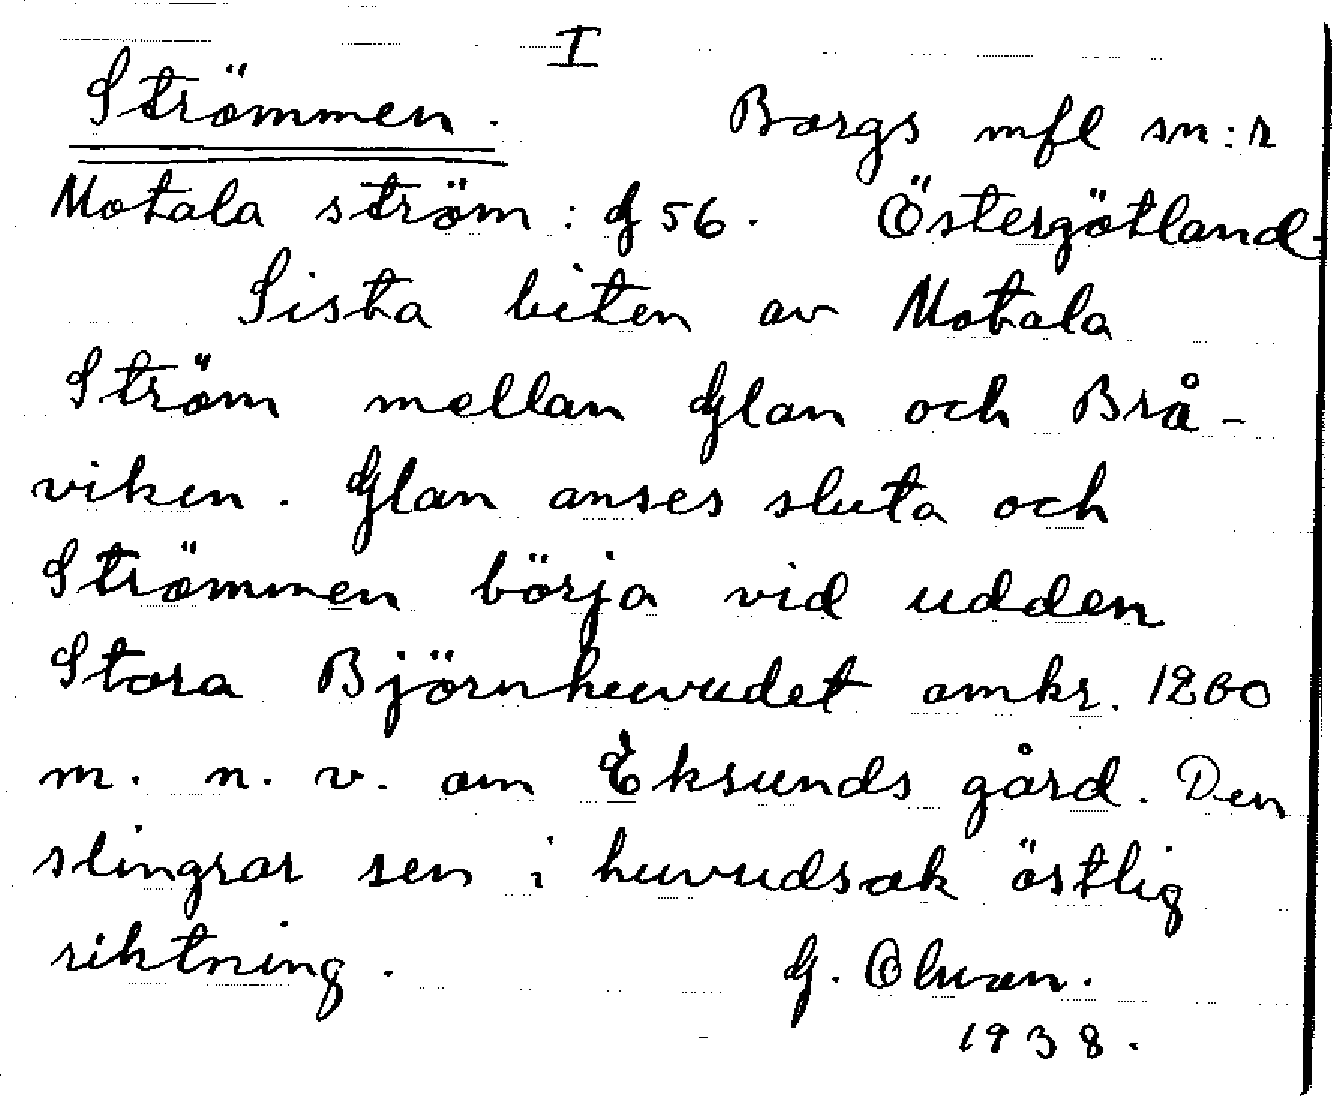 I
Strömmen. Borgs mfl sn:r
Motala ström: G 56. Östergötland.
Sista biten av Motala
Ström mellan Glan och Brå-
viken. Glan anses sluta och
Strömmen börja vid udden
Stora Björnhuvudet omkr. 1200
m. n. v. om Eksunds gård. Den
slingrar sen i huvudsak östlig
riktning. G.
1938.